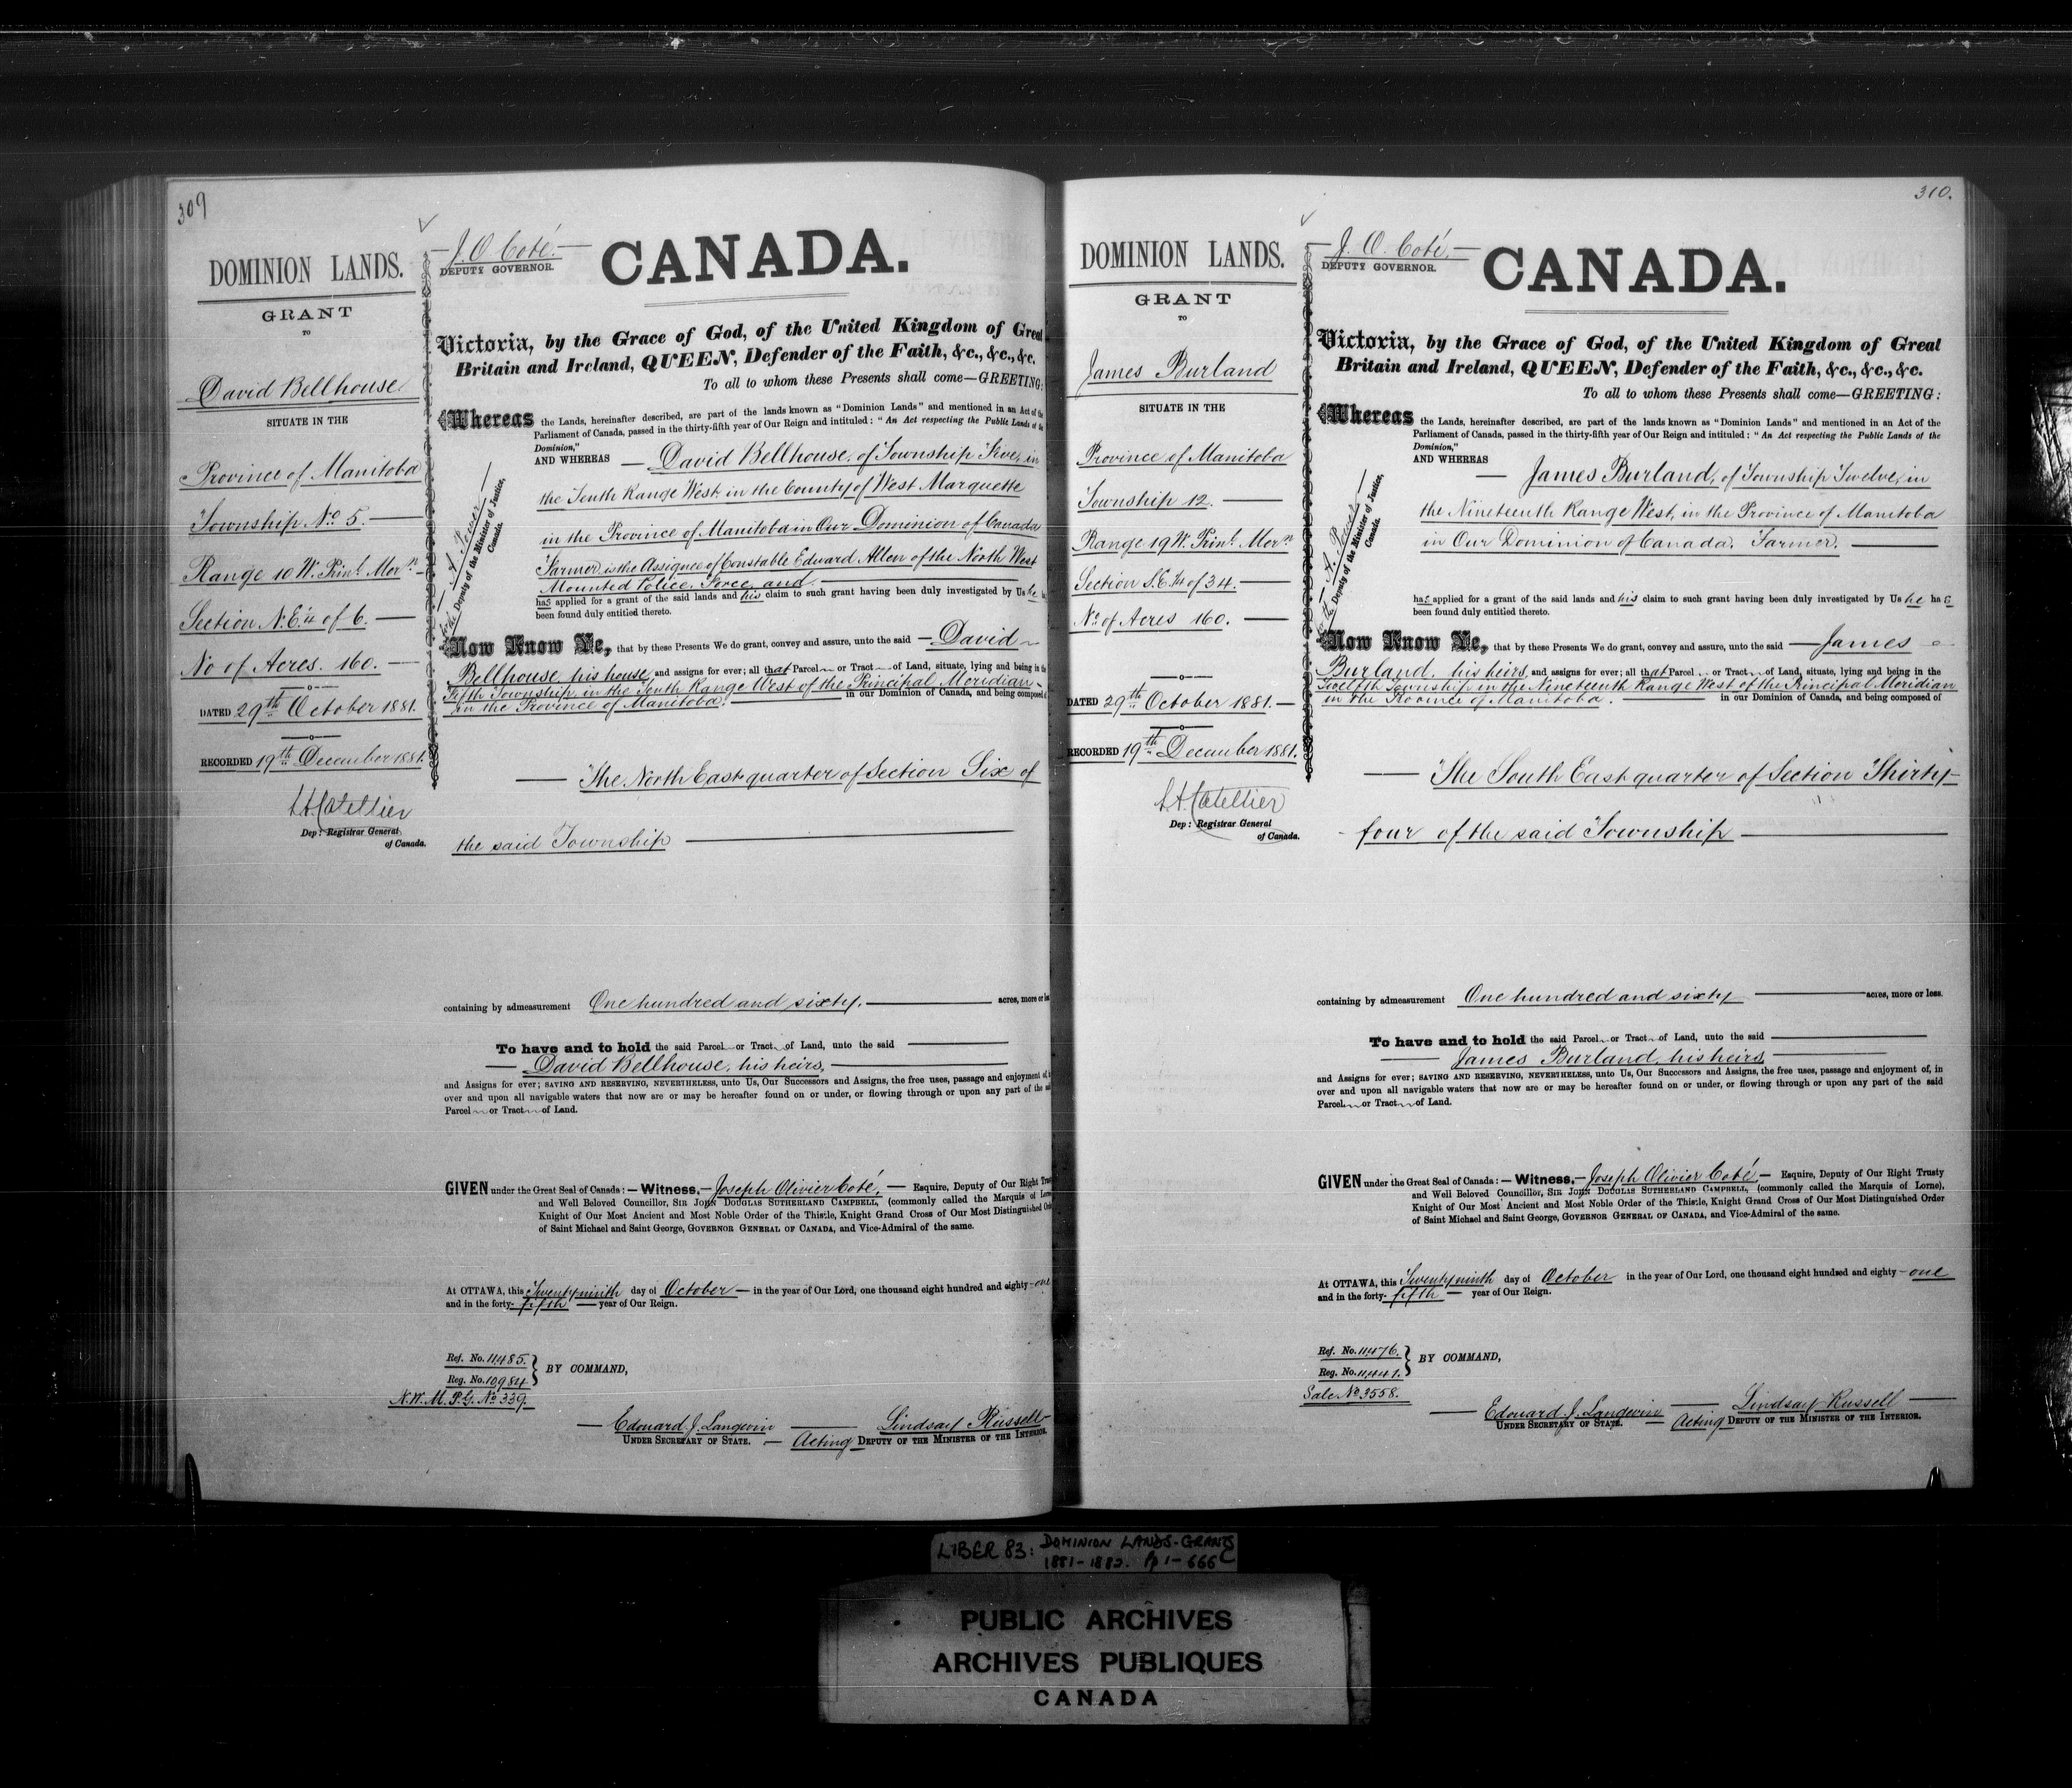 309
DOMINION LANDS.
GRANT
TO
David Bellhouse
SITUATE IN THE
Province of Manitoba
Township No 5.
Range 10 W. Prinl. Mer n
Section N.E.¼ of 6.
No of Acres. 160.
DATED 29th October 1881.
RECORDED 19th December 1881.
Dep: Registrar General
of Canada.
J. O. Coté.
DEPUTY GOVERNOR.
CANADA.
Victoria, by the Grace of God, of the United Kingdom of Great
Britain and Ireland, QUEEN, Defender of the Faith, &c., &c., &c.
To all to whom these Presents shall come—GREETING:
Whereas the Lands, hereinafter described, are part of the lands known as "Dominion Lands" and mentioned in an Act of the
Parliament of Canada, passed in the thirty-fifth year of Our Reign and intituled: "An Act respecting the Public Lands of the
Dominion,"
AND WHEREAS David Bellhouse, of Township Five, in
the Tenth Range West, in the County of West Marquette
in the Province of Manitoba in Our Dominion of Canada
Farmer, is the Assignee of Constable Edward Allen of the North West
Mounted Police Force, and
has applied for a grant of the said lands and his claim to such grant having been duly investigated by Us he
been found duly entitled thereto.
A. Power
Deputy of the Minister of Justice,
Canada.
Now Know Ye, that by these Presents We do grant, convey and assure, unto the said David
Bellhouse, his heirs, and assigns for ever; all that Parcel or Tract of Land, situate, lying and being in the
Fifth Township, in the Tenth Range West of the Principal Meridian
in the Province of Manitoba. in our Dominion of Canada, and being composed of
The North East quarter of Section Six of
the said Township
containing by admeasurement One hundred and sixty. acres, more or less
To have and to hold the said Parcel or Tract of Land, unto the said
David Bellhouse, his heirs,
and Assigns for ever; SAVING AND RESERVING, NEVERTHELESS, unto Us, Our Successors and Assigns, the free uses, passage and enjoyment of, in
over and upon all navigable waters that now are or may be hereafter found on or under, or flowing through or upon any part of the said
Parcel or Tract of Land.
GIVEN under the Great Seal of Canada:—Witness,—Joseph Olivier Coté,— Esquire, Deputy of Our Right Trusty
and Well Beloved Councillor, SIR JOHN DOUGLAS SUTHERLAND CAMPBELL, (commonly called the Marquis of Lorne),
Knight of Our Most Ancient and Most Noble Order of the Thistle, Knight Grand Cross of Our Most Distinguished Order
of Saint Michael and Saint George, GOVERNOR GENERAL OF CANADA, and Vice-Admiral of the same.
At OTTAWA, this Twenty ninth day of October in the year of Our Lord, one thousand eight hundred and eighty-one
and in the forty-fifth year of Our Reign.
Ref. No. 11485.
Reg. No. 10984.
BY COMMAND,
N.W.M.P.G. No 339.
Edouard J. Langevin
UNDER SECRETARY OF STATE.
Lindsay Russell
Acting DEPUTY OF THE MINISTER OF THE INTERIOR.
310.
DOMINION LANDS.
GRANT
TO
James Burland
SITUATE IN THE
Province of Manitoba
Township 12.
Range 19 W. Prinl. Mer n
Section S.E.¼ of 34.
No of Acres 160.
DATED 29th October 1881.
RECORDED 19th December 1881.
Dep: Registrar General
of Canada.
J. O. Coté.
DEPUTY GOVERNOR.
CANADA.
Victoria, by the Grace of God, of the United Kingdom of Great
Britain and Ireland, QUEEN, Defender of the Faith, &c., &c., &c.
To all to whom these Presents shall come—GREETING:
Whereas the Lands, hereinafter described, are part of the lands known as "Dominion Lands" and mentioned in an Act of the
Parliament of Canada, passed in the thirty-fifth year of Our Reign and intituled: "An Act respecting the Public Lands of the
Dominion,"
AND WHEREAS James Burland, of Township Twelve, in
the Nineteenth Range West, in the Province of Manitoba
in Our Dominion of Canada, Farmer.
has applied for a grant of the said lands and his claim to such grant having been duly investigated by Us he has
been found duly entitled thereto.
A. Power
Deputy of the Minister of Justice,
Canada.
Now Know Ye, that by these Presents We do grant, convey and assure, unto the said James
Burland, his heirs, and assigns for ever; all that Parcel or Tract of Land, situate, lying and being in the
Twelfth Township in the Nineteenth Range West of the Principal Meridian
in the Province of Manitoba. in our Dominion of Canada, and being composed of
The South East quarter of Section Thirty-
four of the said Township
containing by admeasurement One hundred and sixty acres, more or less.
To have and to hold the said Parcel or Tract of Land, unto the said
James Burland, his heirs,
and Assigns for ever; SAVING AND RESERVING, NEVERTHELESS, unto Us, Our Successors and Assigns, the free uses, passage and enjoyment of, in
over and upon all navigable waters that now are or may be hereafter found on or under, or flowing through or upon any part of the said
Parcel or Tract of Land.
GIVEN under the Great Seal of Canada:—Witness,—Joseph Olivier Coté,— Esquire, Deputy of Our Right Trusty
and Well Beloved Councillor, SIR JOHN DOUGLAS SUTHERLAND CAMPBELL, (commonly called the Marquis of Lorne),
Knight of Our Most Ancient and Most Noble Order of the Thistle, Knight Grand Cross of Our Most Distinguished Order
of Saint Michael and Saint George, GOVERNOR GENERAL OF CANADA, and Vice-Admiral of the same.
At OTTAWA, this Twenty ninth day of October in the year of Our Lord, one thousand eight hundred and eighty-one
and in the forty-fifth year of Our Reign.
Ref. No. 11476.
Reg. No. 11441.
BY COMMAND,
Sale No 3558.
Edouard J. Langevin
UNDER SECRETARY OF STATE.
Lindsay Russell
Acting DEPUTY OF THE MINISTER OF THE INTERIOR.
LIBER 83: DOMINION LANDS-GRANTS
1881-1882. Pp 1-666
PUBLIC ARCHIVES
ARCHIVES PUBLIQUES
CANADA